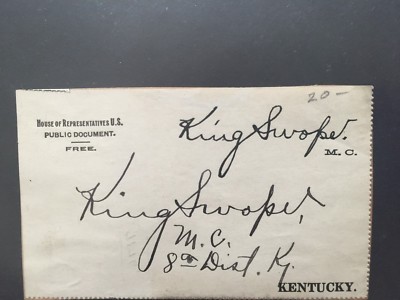 20-
House of Representatives U.S.
PUBLIC DOCUMENT.
FREE.
King Swope.
M.C.
King Swope,
M.C.
8th Dist. Ky.
KENTUCKY.